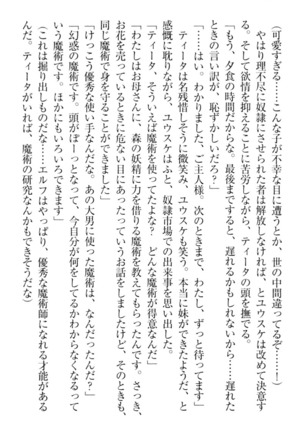 (可愛すぎる……こんな子が不幸な目に遭うとか、世の中間違ってるぞ……!)
やはり理不尽に奴隷にさせられた者は解放しなければ、とユウスケは改めて決意す
る。そして欲情を抑えることに苦労しながら、ティータの頭を撫でる。
「もう、夕食の時間だからな。最後まですると、遅れるかもしれないから……遅れた
ときの言い訳が、恥ずかしいだろ?」
「……はい。わかりました、ご主人様。次のときまで、わたし、ずっと待ってます」
ティータは名残惜しそうに微笑み、ユウスケも笑う。本当に妹ができたようだ、と
感慨に耽りながら、ユウスケはふと、奴隷市場での出来事を思い出した。
「ティータ、そういえば魔術を使ってたよな? どんな魔術が得意なんだ?」
「わたしはお母さんに、森の妖精に力を借りる魔術を教えてもらったんです。さっき、
お花を売っているときに危ない目にあったっていうお話をしましたけど、そのときも、
同じ魔術で身を守ることができました」
「けっこう優秀な使い手なんだな。あの大男に使った魔術は、なんだったんだ?」
「幻惑の魔術です。頭がぼーっとなって、今自分が何をしてるかわからなくなるって
いう魔術です。ほかにもいろいろできます」
(これは掘り出しものだな……エルフはやっぱり、優秀な魔術師になれる才能がある
んだ。ティータがいれば、魔術の研究なんかもできそうだな)